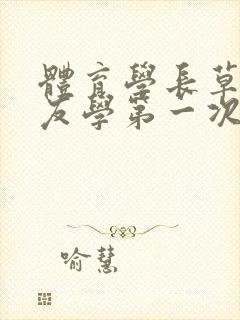 體育學長草
友學第一次
喻慧